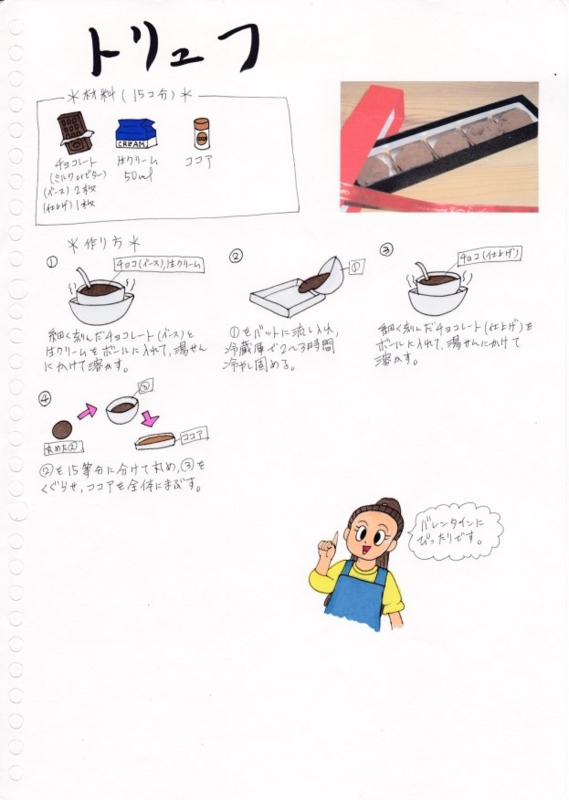 トリュフ
＊材料(15コ分)＊
CREAM
チョコレート
(ミルクorビター)
(ベース) 2枚
(仕上げ) 1枚
生クリーム
50ml
ココア
＊作り方＊
①
チョコ(ベース),生クリーム
細く刻んだチョコレート(ベース)と
生クリームをボールに入れて、湯せん
にかけて溶かす。
②
①
①をバットに流し入れ、
冷蔵庫で2~3時間
冷やし固める。
③
チョコ(仕上げ)
細く刻んだチョコレート(仕上げ)を
ボールに入れて、湯せんにかけて
溶かす。
④
丸めた②
③
ココア
②を15等分に分けて丸め、③を
くぐらせ、ココアを全体にまぶす。
バレンタインに
ぴったりです。